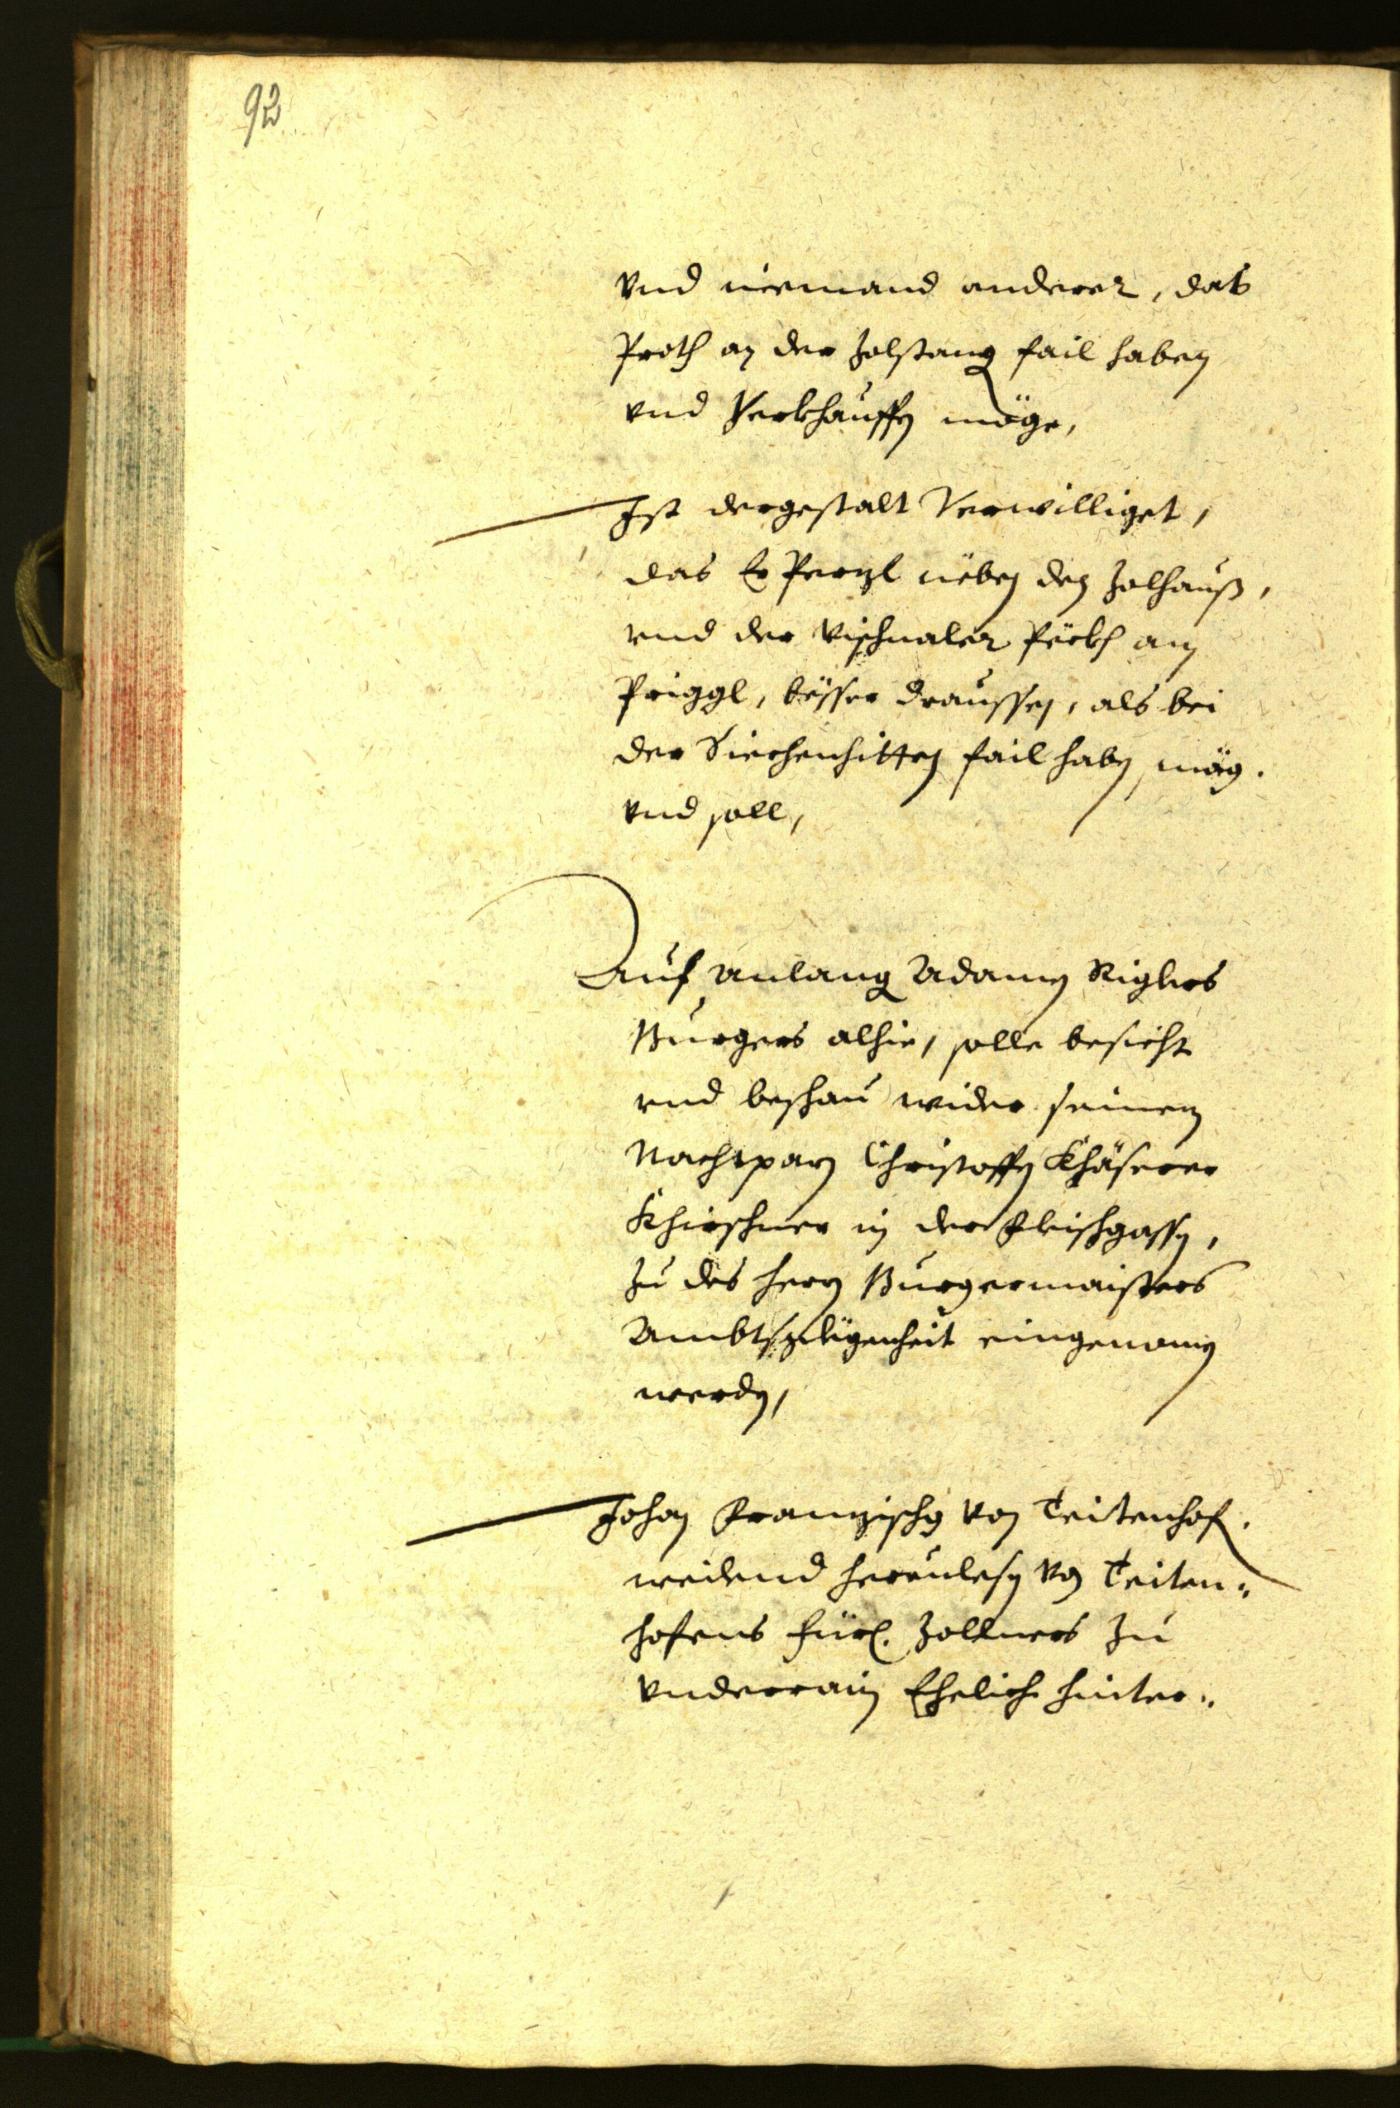 92
vnd niemand anderer, das
Proth an der Zolstang fail haben
vnd Verkhauffen möge,
Ist dergestalt Verwilliget,
das Er Perzl neben den Zolhauß,
vnd der Vischnaler Pëckh am
Priggl, bësser draussen, als bei
der Siechenhitten fail haben mög.
vnd soll,
Auf anlang Adamen Riglers
Burgers alhie, solle besicht
vnd beschau wider seinen
Nachtparn Christoffen Khäserer
Khirschner in der Fleischgassen,
Zu des herrn Burgermaisters
Ambtsglëgenheit eingenomen
werden,
Johan Französischg von Teitenhof.
weilend herculesn von Teiten-
hofens fürl. Zollners Zu
Underrain Ehelich hinter-